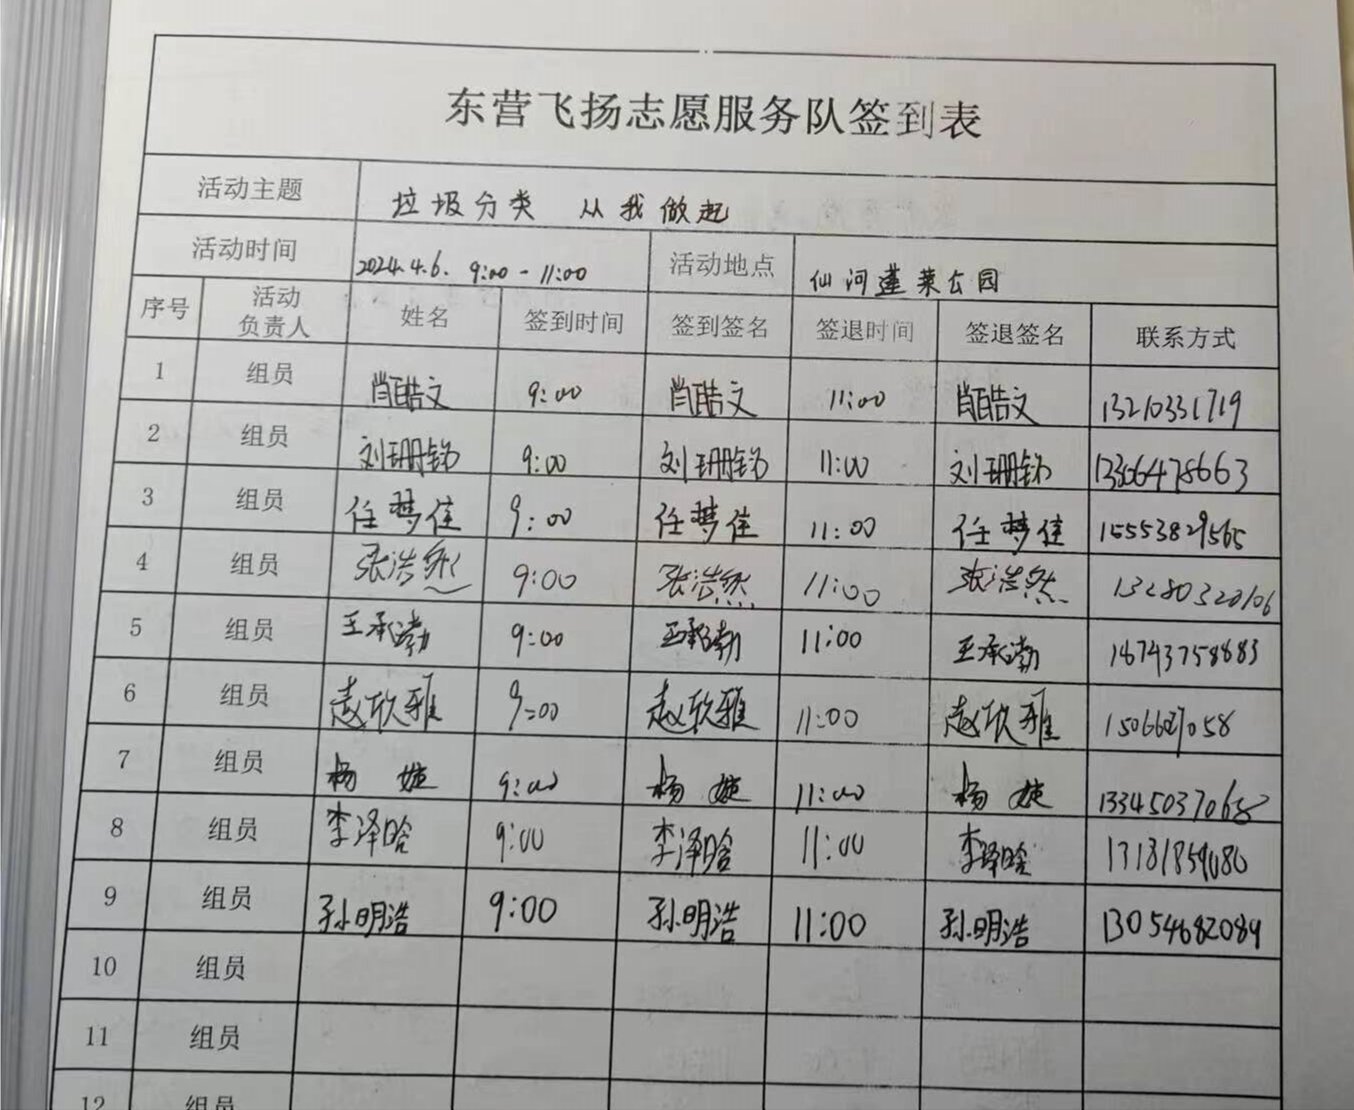 东营飞扬志愿服务队签到表
活动主题 垃圾分类 从我做起
活动时间 2024.4.6. 9:00-11:00 活动地点 仙河蓬莱公园
序号 活动负责人 姓名 签到时间 签到签名 签退时间 签退签名 联系方式
1 组员 肖皓文 9:00 肖皓文 11:00 肖皓文 13210331719
2 组员 刘珊铭 9:00 刘珊铭 11:00 刘珊铭 13306478663
3 组员 任梦佳 9:00 任梦佳 11:00 任梦佳 15553829565
4 组员 张浩然 9:00 张浩然 11:00 张浩然 13280320106
5 组员 王承渤 9:00 王承渤 11:00 王承渤
6 组员 赵欣雅 9:00 赵欣雅 11:00 赵欣雅
7 组员 杨婕 9:00 杨婕 11:00 杨婕
8 组员 李泽晗 9:00 李泽晗 11:00 李泽晗
9 组员 孙明浩 9:00 孙明浩 11:00 孙明浩 13054682089
10 组员
11 组员
12 组员